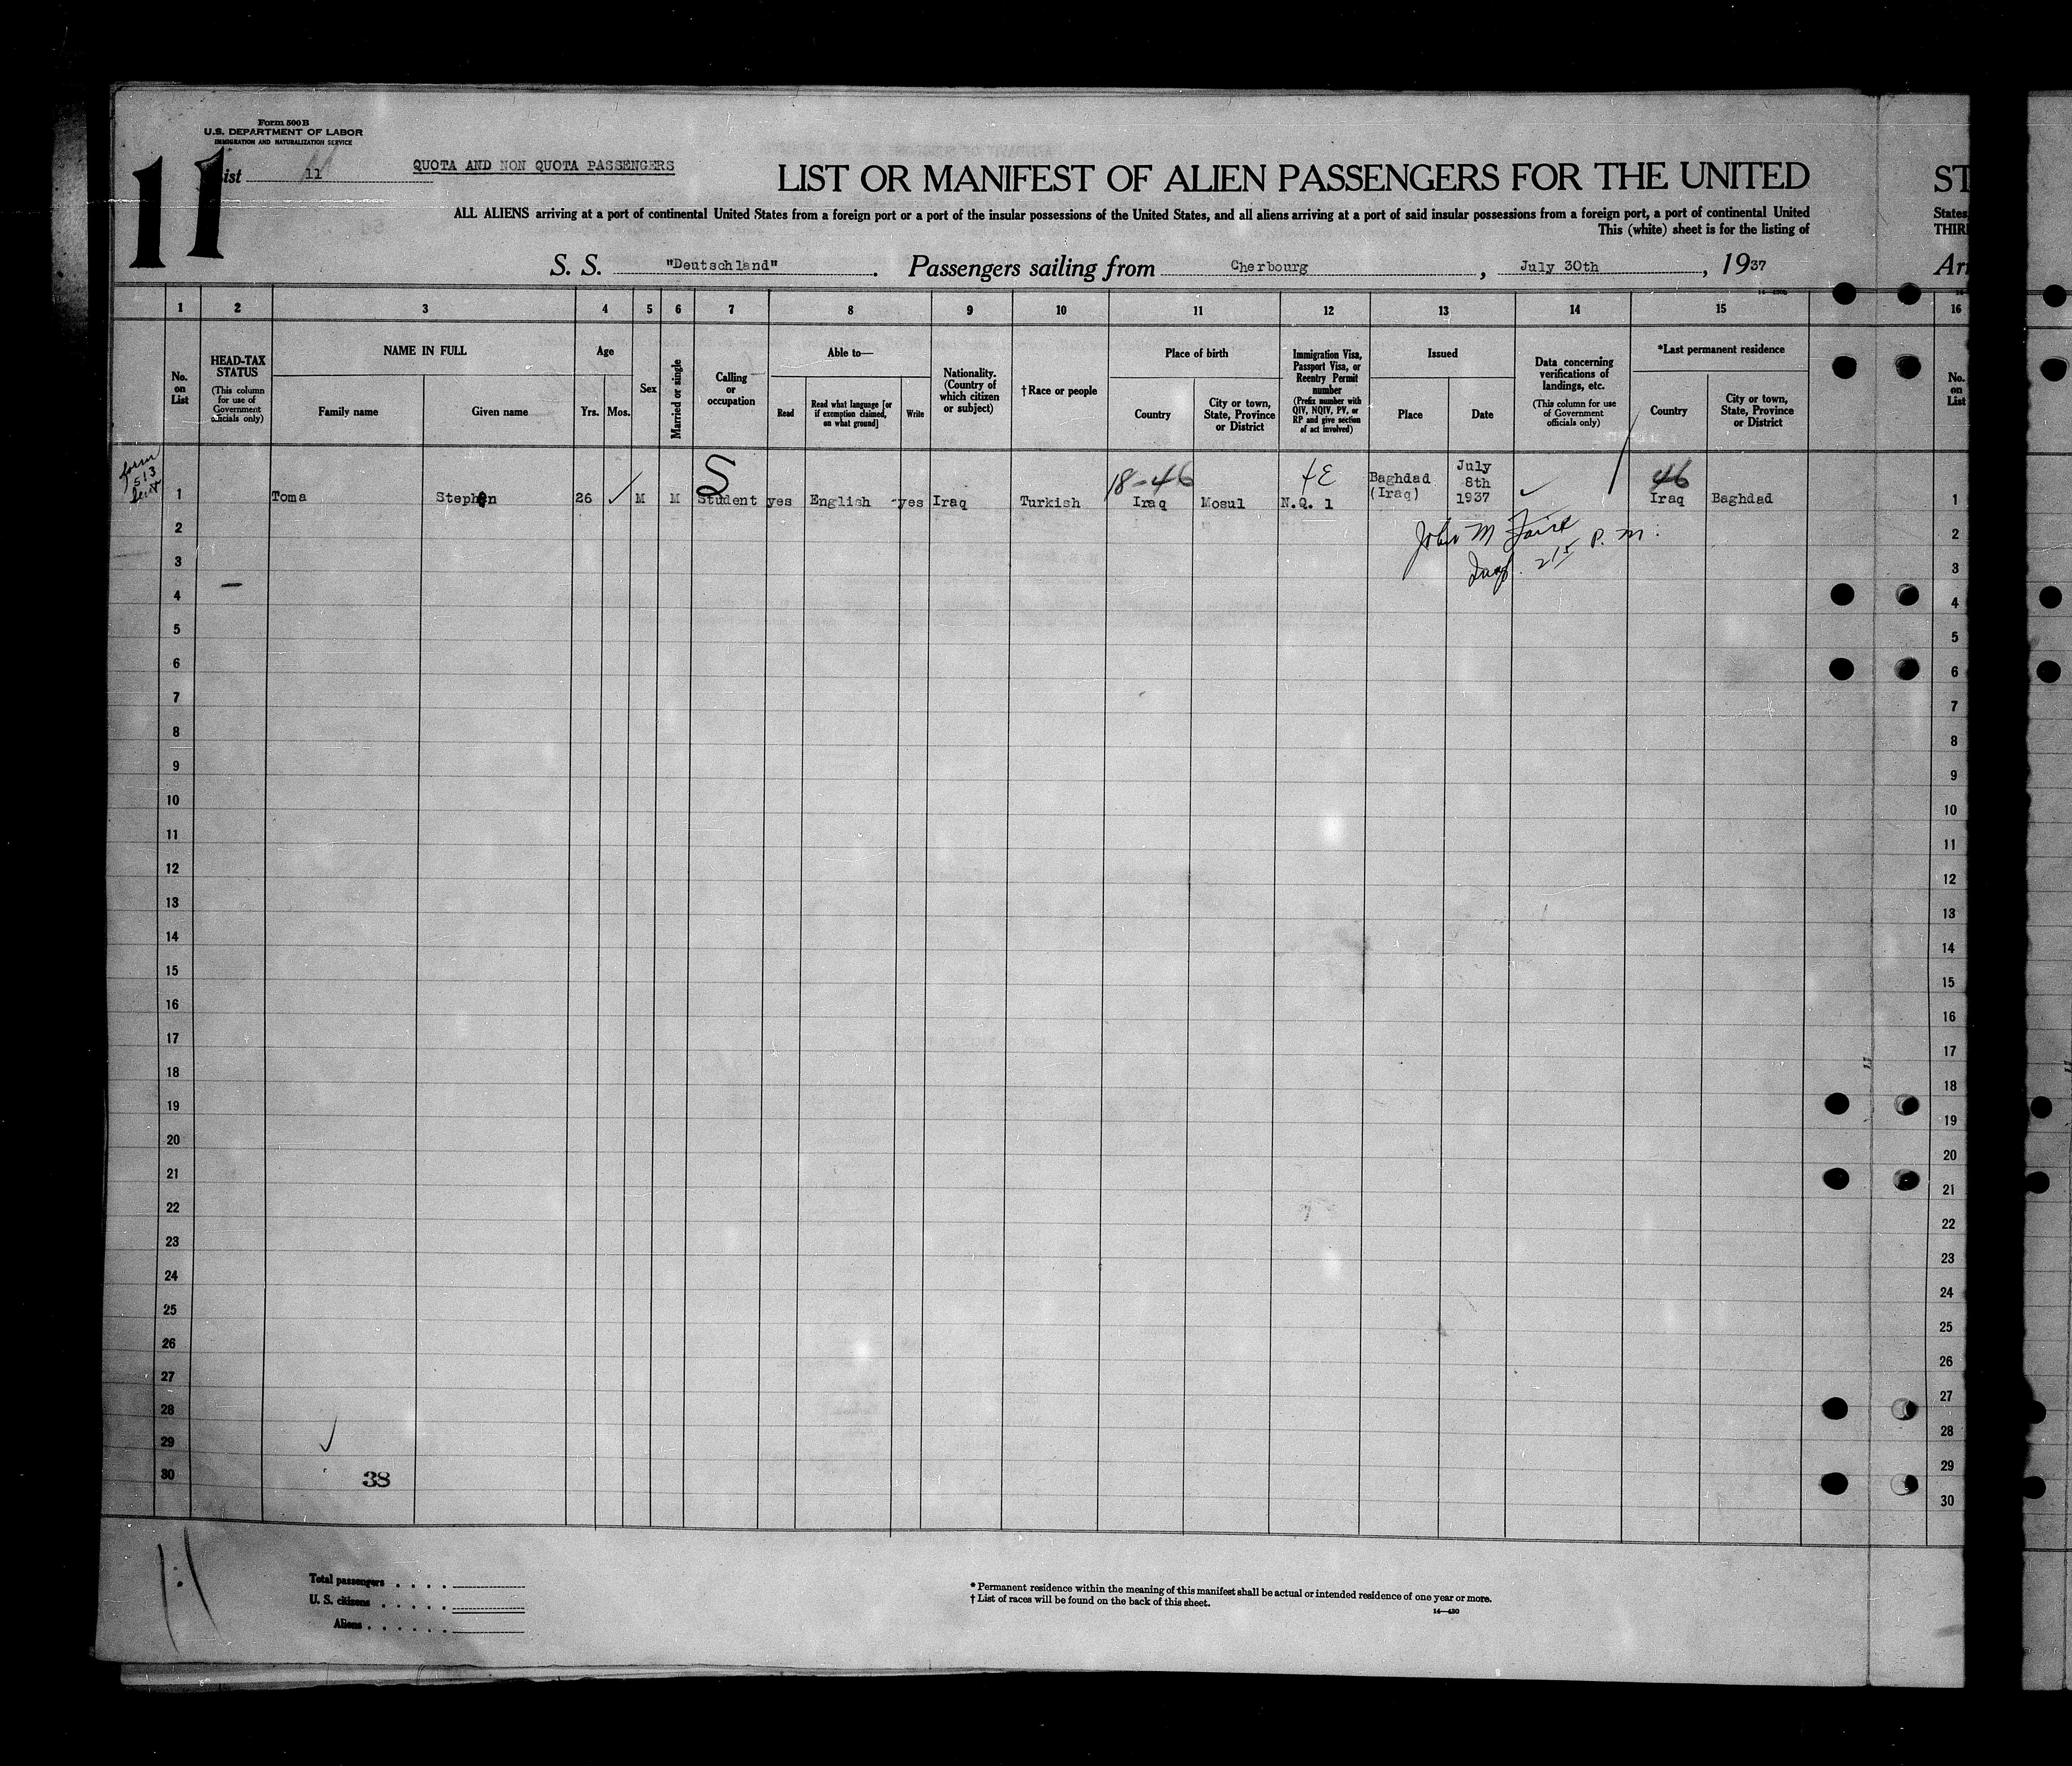 Form 500B
U.S. DEPARTMENT OF LABOR
IMMIGRATION AND NATURALIZATION SERVICE
11
ist 11
QUOTA AND NON QUOTA PASSENGERS
LIST OR MANIFEST OF ALIEN PASSENGERS FOR THE UNITED
ST
ALL ALIENS arriving at a port of continental United States from a foreign port or a port of the insular possessions of the United States, and all aliens arriving at a port of said insular possessions from a foreign port, a port of continental United
States,
This (white) sheet is for the listing of
THIR
S. S. "Deutschland". Passengers sailing from Cherbourg, July 30th, 1937
Arr
1 2 3 4 5 6 7 8 9 10 11 12 13 14 15 16
No. on List
HEAD-TAX STATUS
(This column for use of Government officials only)
NAME IN FULL
Family name
Given name
Age
Yrs. Mos.
Sex
Married or single
Calling or occupation
Able to—
Read
Read what language [or if exemption claimed, on what ground]
Write
Nationality. (Country of which citizen or subject)
†Race or people
Place of birth
Country
City or town, State, Province or District
Immigration Visa, Passport Visa, or Reentry Permit number
(Prefix number with QIV, NQIV, PV, or RP and give section of act involved)
Issued
Place
Date
Data concerning verifications of landings, etc.
(This column for use of Government officials only)
*Last permanent residence
Country
City or town, State, Province or District
No. on List
form 513
S
18-46
4E
46
1 Toma Stephen 26 M M Student yes English -yes Iraq Turkish Iraq Mosul N.Q. 1 Baghdad (Iraq) July 8th 1937 Iraq Baghdad 1
John M
2 2
215 P.M.
3 3
4 4
5 5
6 6
7 7
8 8
9 9
10 10
11 11
12 12
13 13
14 14
15 15
16 16
17 17
18 18
19 19
20 20
21 21
22 22
23 23
24 24
25 25
26 26
27 27
28 28
29 29
30 38 30
Total passengers . . . .
U. S. citizens . . . . .
Aliens . . . . . .
* Permanent residence within the meaning of this manifest shall be actual or intended residence of one year or more.
† List of races will be found on the back of this sheet.
14—430